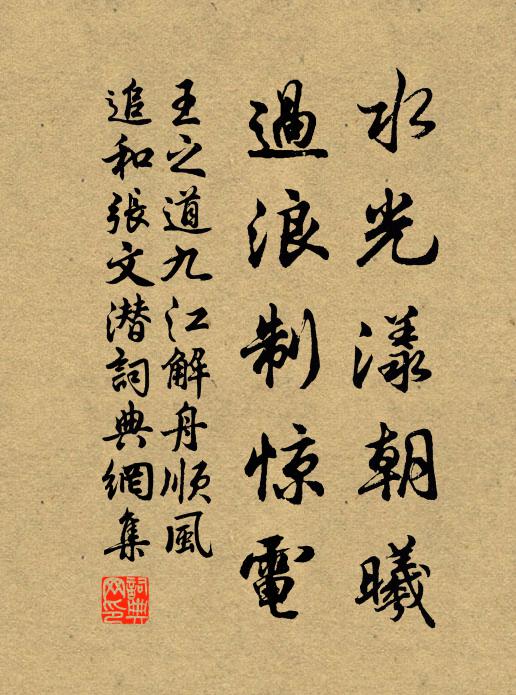 水光漾朝曦
過浪制惊電
王之道九江解舟順風
追和張文潜詞典網集
詞典网印